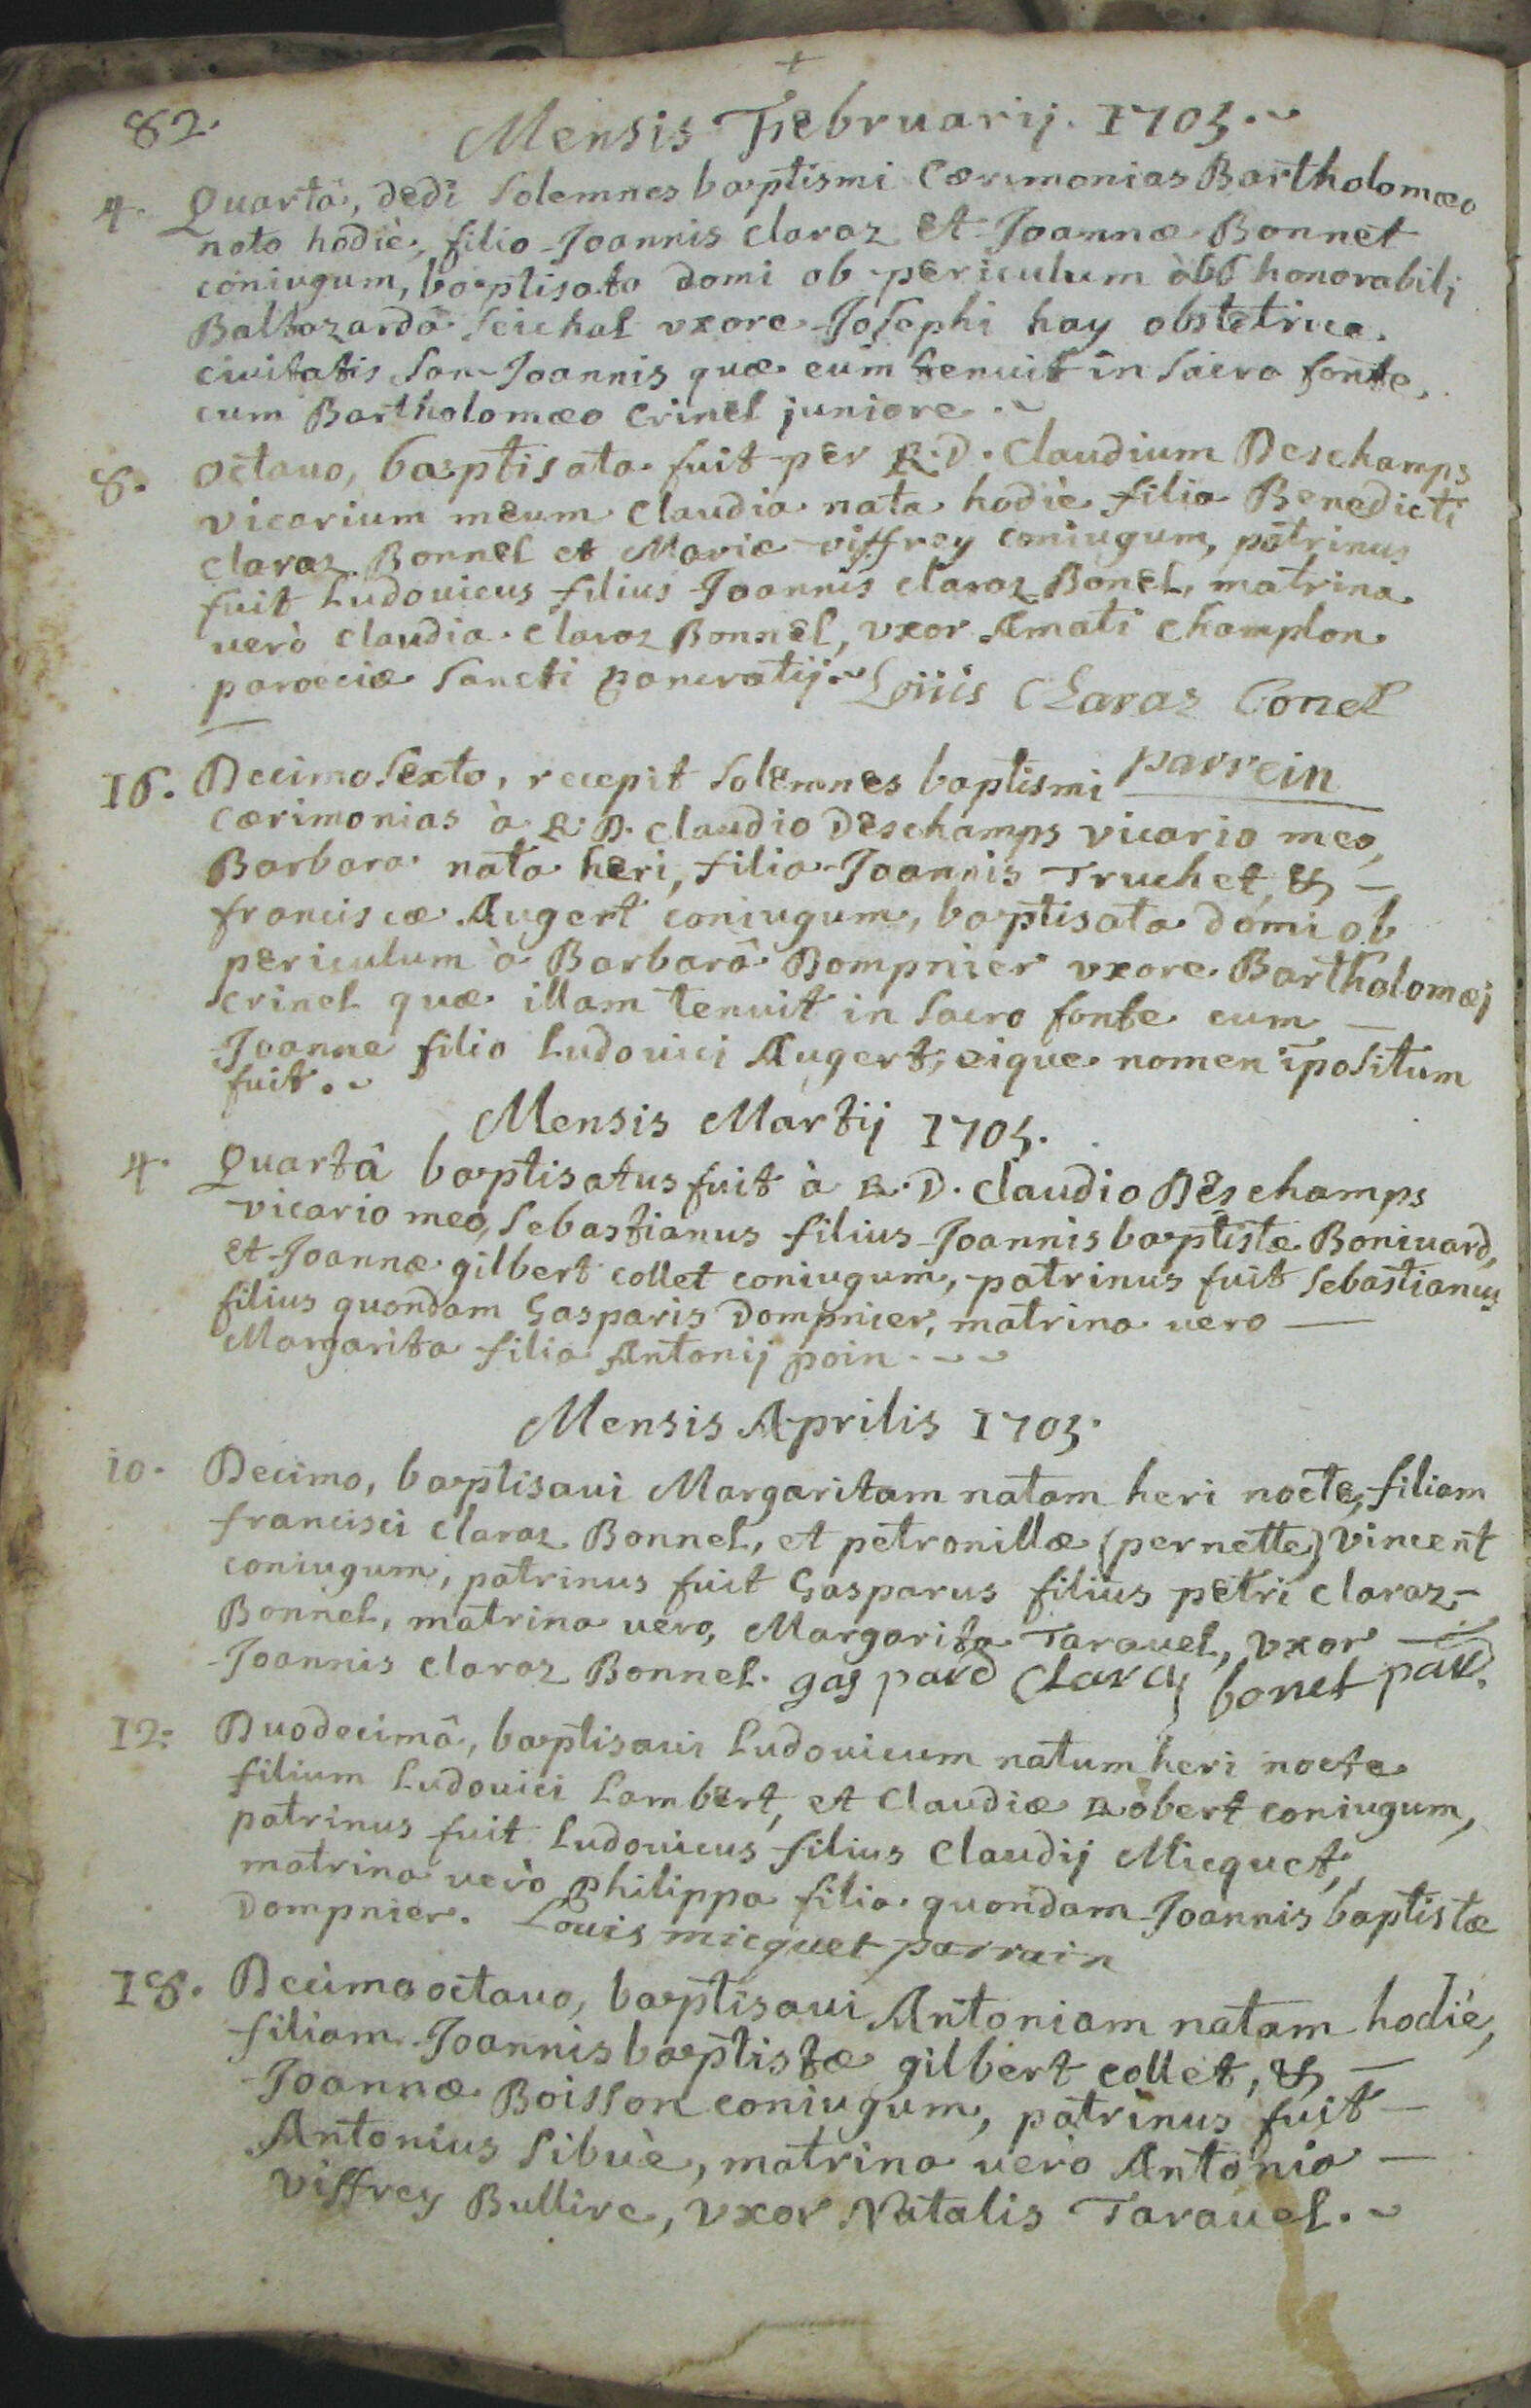 +
82.
Mensis Februarij. 1705.
4. Quartâ, dedi Solemnes baptismi Cærimonias Bartholomæo
nato hodiè, filio Joannis claraz et Joannæ Bonnet
coniugum, baptisato domi ob periculum ab honorabili
Baltazardâ Seichal vxore Josephi hay obstetrice
ciuitatis San-Joannis quæ eum tenuit in Sacro fonte,
cum Bartholomæo Crinel juniore.
8. octauo, baptisata fuit per R. D. Claudium Deschamps
vicarium meum Claudia nata hodiè filia Benedicti
claraz Bonnel et Mariæ viffrey coniugum, patrinus
fuit Ludouicus filius Joannis claraz Bonel, matrina
uerò claudia claraz Bonnel, vxor Amati champlon
paroeciæ Sancti pancratij. Loüis Claraz Bonel
parrein
16. Decimo Sexto, recepit Solemnes baptismi
cærimonias à R. D. claudio Deschamps vicario meo,
Barbara nata heri, filia Joannis Truchet, &
franciscæ Augert coniugum, baptisata domi ob
periculum à Barbarâ Dompnier vxore Bartholomæj
crinel quæ illam tenuit in Sacro fonte cum
Joanne filio Ludouici Augert, eique nomen īpositum
fuit.
Mensis Martij 1705.
4. Quartâ baptisatus fuit à R. D. claudio Deschamps
vicario meo, Sebastianus filius Joannis baptistæ Boniuard,
et Joannæ gilbert collet coniugum, patrinus fuit Sebastianus
filius quondam Gasparis Dompnier, matrina uero
Margarita filia Antonij poin.
Mensis Aprilis 1705.
10. Decimo, baptisaui Margaritam natam heri nocte, filiam
francisci claraz Bonnel, et petronillæ (pernette) Vincent
coniugum, patrinus fuit Gasparus filius petri claraz
Bonnel, matrina uero, Margarita Tarauel, vxor
Joannis claraz Bonnel. gaspard Claraz bonel
12. Duodecimâ, baptisaui Ludouicum natum heri nocte
filium Ludouici Lambert, et Claudiæ Robert coniugum,
patrinus fuit Ludouicus filius Claudij Micquet,
matrina uerò philippa filia quondam Joannis baptistæ
Dompnier. Louis micquet parrain
18. Decimo octauo, baptisaui Antoniam natam hodiè,
filiam Joannis baptistæ gilbert collet, &
Joannæ Boisson coniugum, patrinus fuit
Antonius Sibuè, matrina uerò Antonia
viffrey Bullire, vxor Natalis Tarauel.